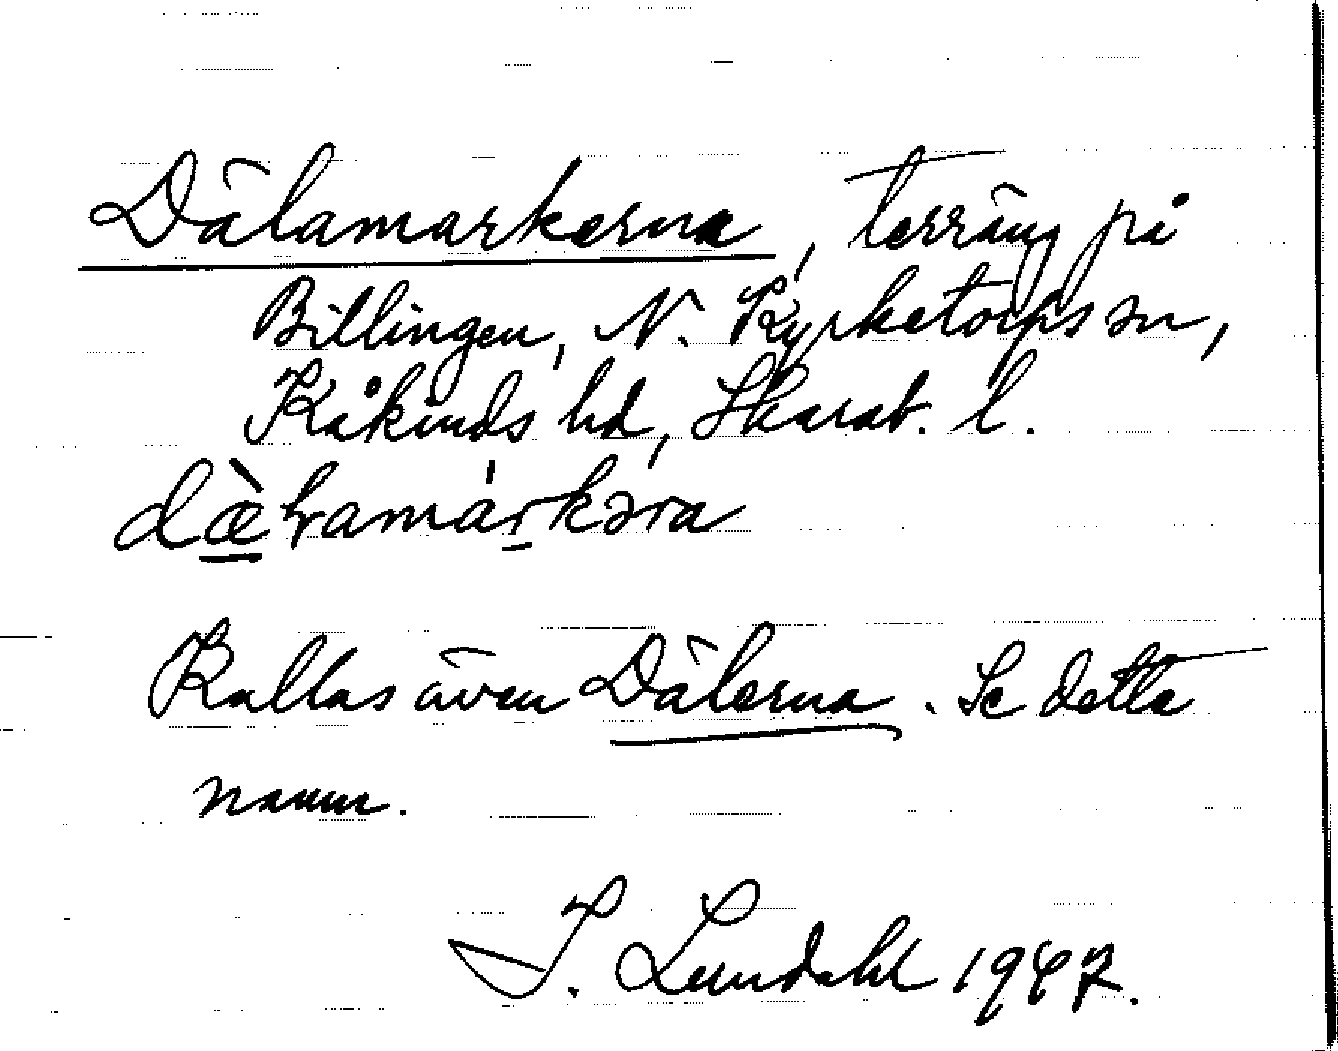 Dälamarkerna, terräng på
Billingen, N. Kyrketorps sn,
Kåkinds hd, Skarab. l.
dæ̀ɽamárkəra
Kallas även Dälerna. Se detta
namn.
I. Lundahl 1947.